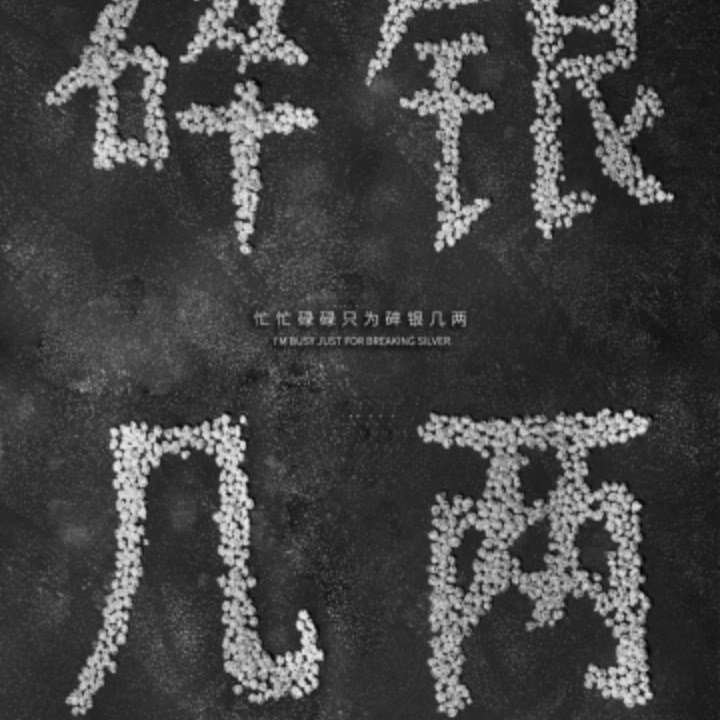 碎银
忙忙碌碌只为碎银几两
I'M BUSY JUST FOR BREAKING SILVER
几两